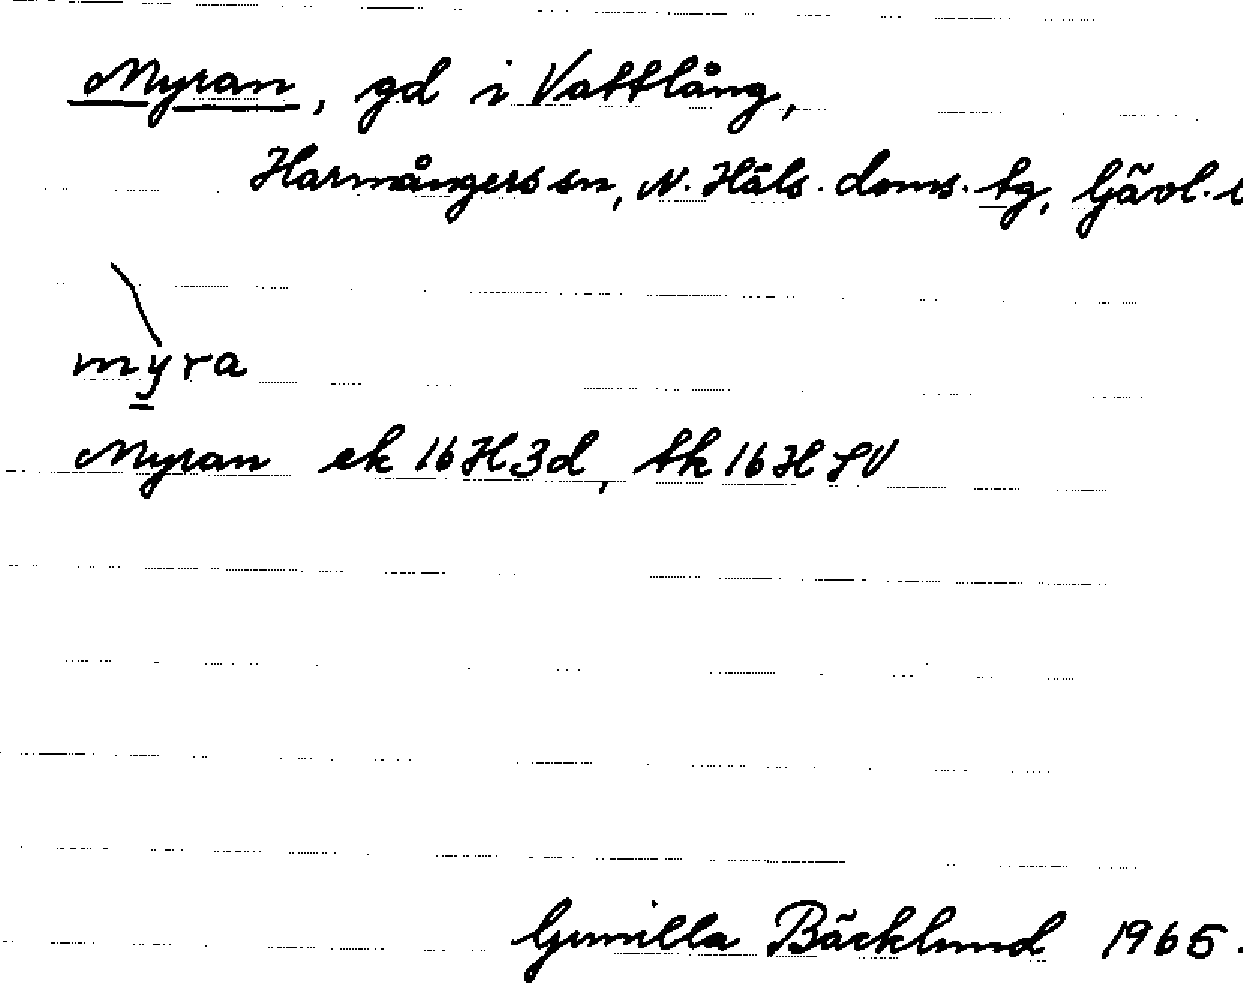 Myran, gd i Vattlång,
Harmångers sn, N. Häls. doms. tg, Gävl. l
myra
Myran ek 16H3d, tk 16H SV
Gunilla Bäcklund 1965.